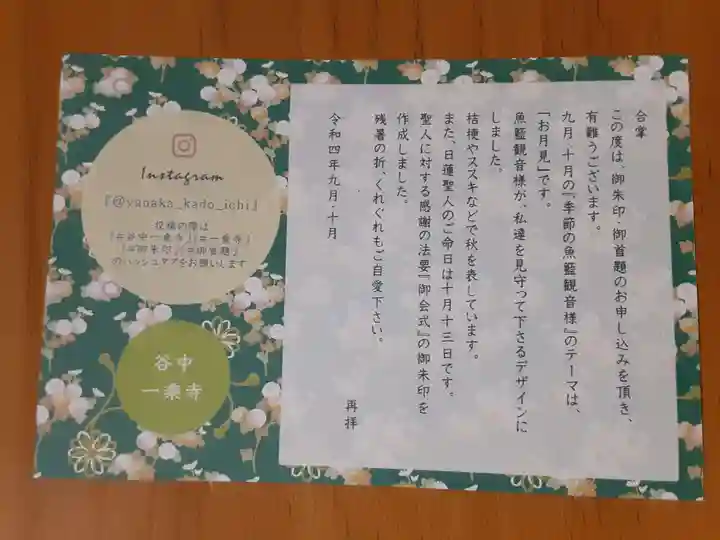 合掌
この度は、御朱印・御首題のお申し込みを頂き、
有難うございます。
九月、十月の『季節の魚籃観音様』のテーマは、
「お月見」です。
魚籃観音様が、私達を見守って下さるデザインに
しました。
桔梗やススキなどで秋を表しています。
また、日蓮聖人のご命日は十月十三日です。
聖人に対する感謝の法要『御会式』の御朱印を
作成しました。
残暑の折、くれぐれもご自愛下さい。
再拝
令和四年九月・十月
Instagram
『@yanaka_kado_ichi』
投稿の際は
「#谷中一乗寺」「#一乗寺」
「#御朱印」「#御首題」
のハッシュタグをお願いします
谷中
一乗寺